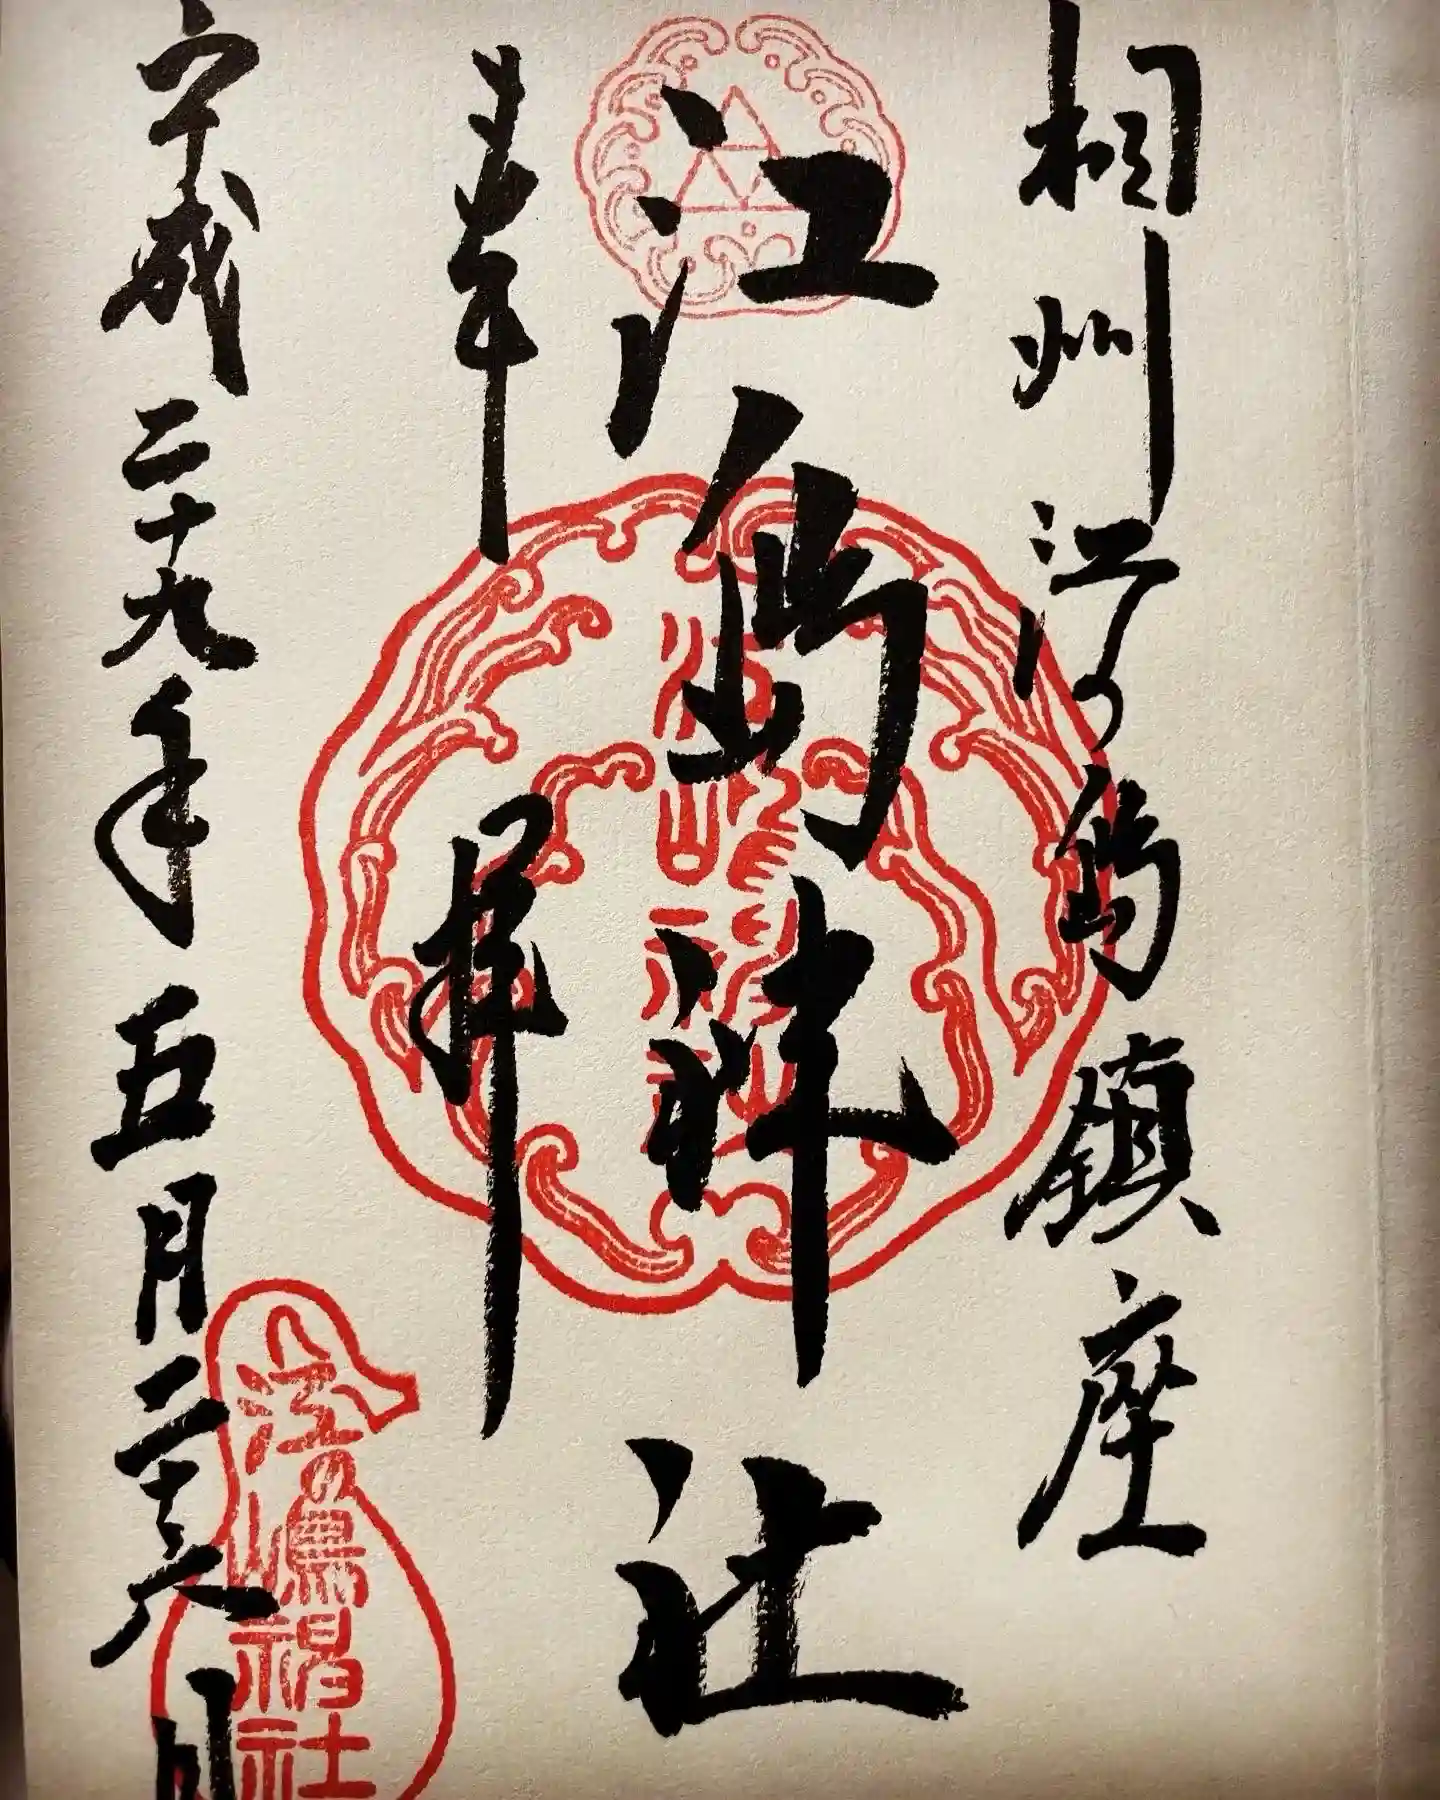 相州江の島鎮座
江島神社
奉拝
平成二十九年五月二十六日
江の嶋神社